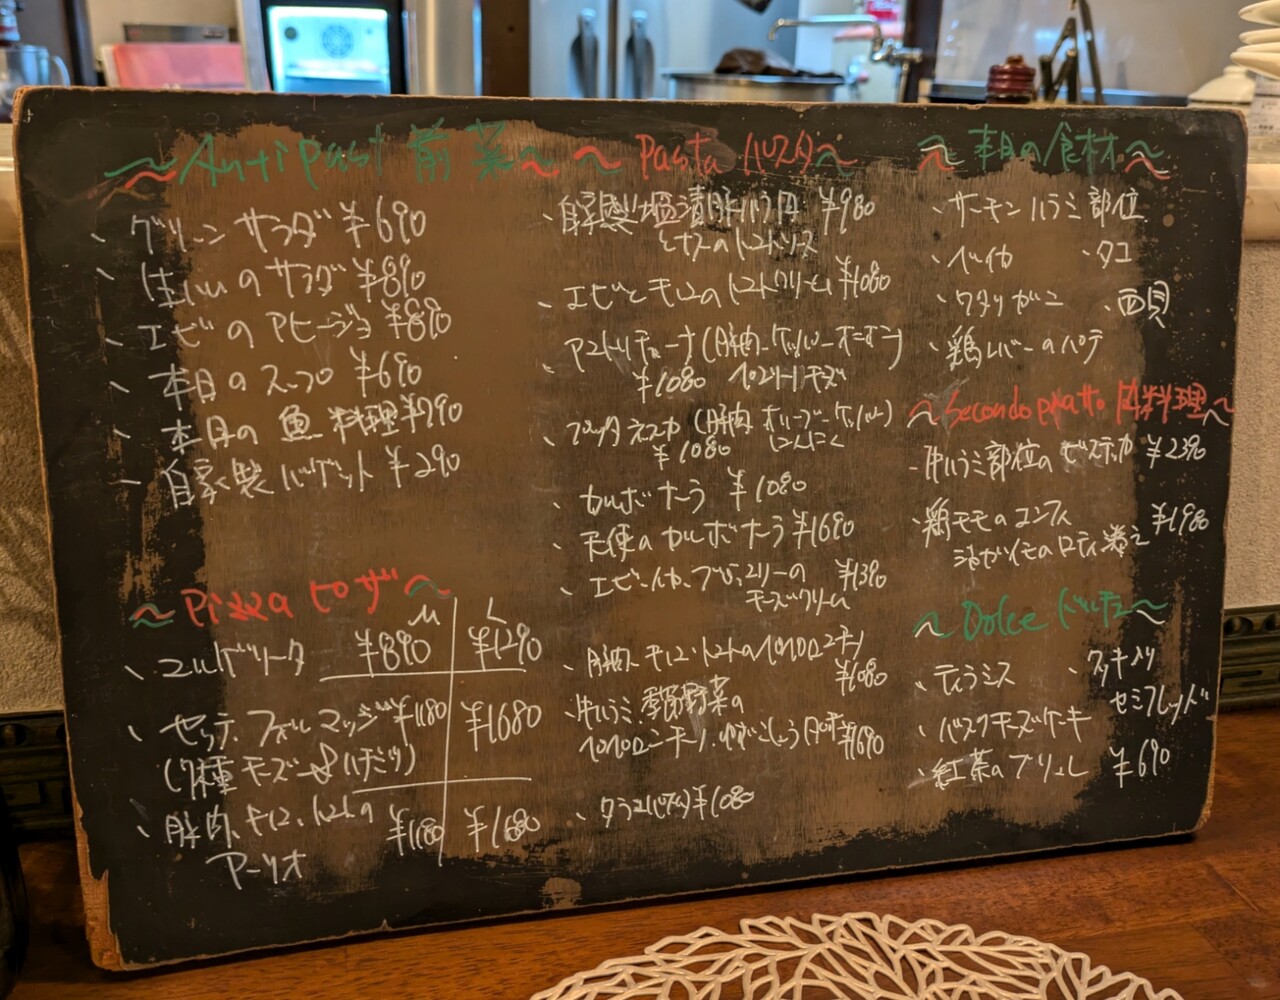 ~Antipast 前菜~
、グリーンサラダ ¥690
、生ハムのサラダ ¥890
、エビのアヒージョ ¥890
、本日のスープ ¥690
、本日の魚料理 ¥790
、自家製バゲット ¥290
~Pizza ピザ~
M L
、マルゲリータ ¥890 ¥1290
、セッテ.フォルマッジ ¥1180 ¥1680
(7種チーズ&ハチミツ)
、豚肉、キノコ、トマトの ¥1180 ¥1680
アーリオ
~Pasta パスタ~
、自家製塩漬豚バラ肉 ¥980
とナスのトマトソース
、エビとキノコのトマトクリーム ¥1080
アマトリチャーナ(豚肉、ケッパー、オニオン)
¥1080 ペコリーノチーズ
、プッタネスカ(豚肉 オリーブ、ケッパー)
¥1080 にんにく
、カルボナーラ ¥1080
、天使のカルボナーラ ¥1690
、エビ、イカ、ブロッコリーの ¥1390
チーズクリーム
、豚肉、キノコ、トマトのペペロンチーノ
¥1080
、牛ハラミ、季節野菜の
ペペロンチーノ、ゆずこしょう ¥1690
、タラコパスタ ¥1080
~本日の食材~
、サーモンハラミ部位
、ベイカ 、タコ
、ワタリガニ 、西貝
、鶏レバーのパテ
~Secondo piatto 肉料理~
、牛ハラミ部位のビステッカ ¥2390
、鶏モモのコンフィ ¥1980
ジャガイモのロティ添え
~Dolce ドルチェ~
、ティラミス 、クッキー入り
セミフレッド
、バスクチーズケーキ
、紅茶のブリュレ ¥690